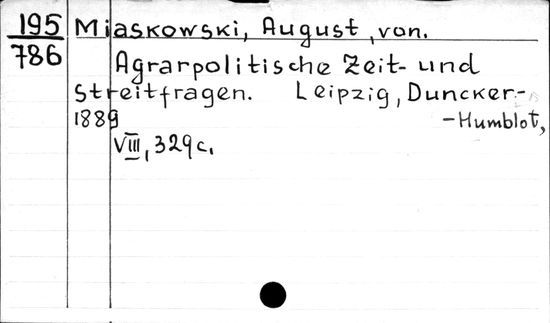 195 Miaskowski, August, von.
786
Agrarpolitische Zeit- und
Streitfragen. Leipzig, Duncker-
1889 -Humblot,
VIII, 329c.